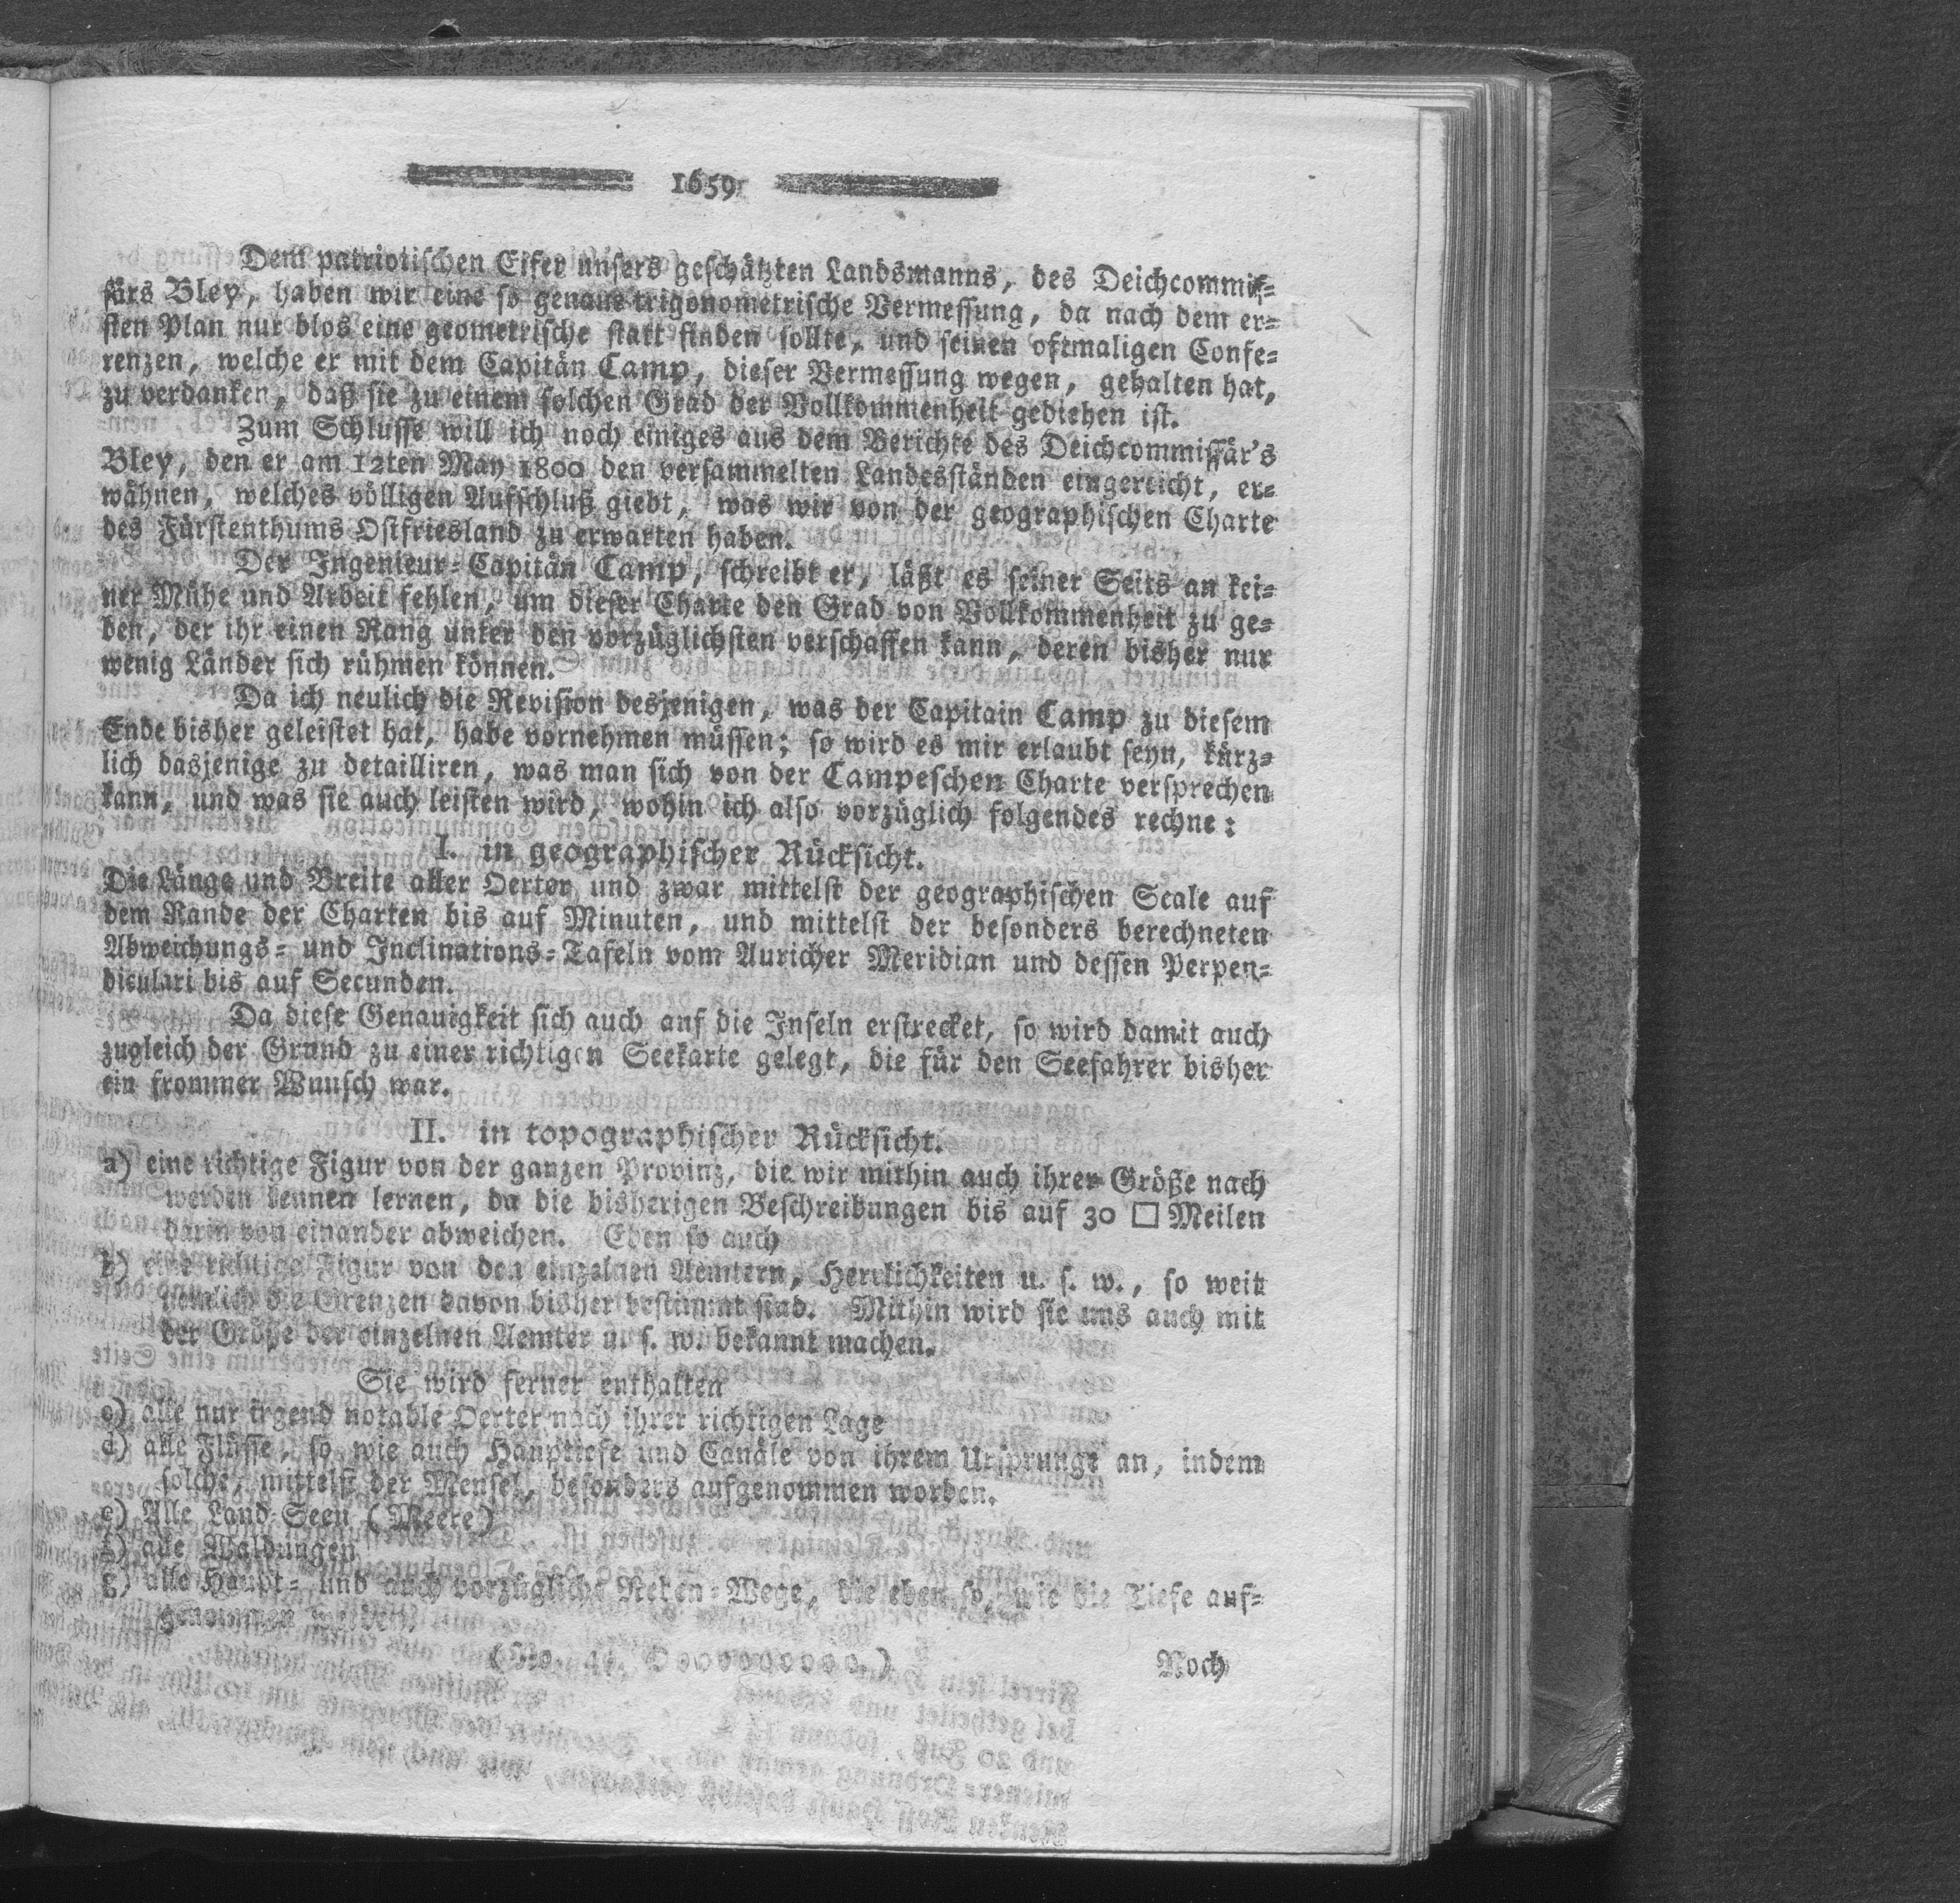 1659
Dem patriotischen Eifer unsers geschätzten Landsmanns, des Deichcommis-
särs Bley, haben wir eine so genaue trigonometrische Vermessung, da nach dem er-
sten Plan nur blos eine geometrische statt finden sollte, und seinen oftmaligen Confe-
renzen, welche er mit dem Capitän Camp, dieser Vermessung wegen, gehalten hat,
zu verdanken, daß sie zu einem solchen Grad der Vollkommenheit gediehen ist.
Zum Schlusse will ich noch einiges aus dem Berichte des Deichcommissär's
Bley, den er am 12ten May 1800 den versammelten Landesständen eingereicht, er-
wähnen, welches völligen Aufschluß giebt, was wir von der geographischen Charte
des Fürstenthums Ostfriesland zu erwarten haben.
Der Ingenieur-Capitän Camp, schreibt er, läßt es seiner Seits an kei-
ner Mühe und Arbeit fehlen, um dieser Charte den Grad von Vollkommenheit zu ge-
ben, der ihr einen Rang unter den vorzüglichsten verschaffen kann, deren bisher nur
wenig Länder sich rühmen können.
Da ich neulich die Revision desjenigen, was der Capitain Camp zu diesem
Ende bisher geleistet hat, habe vornehmen müssen; so wird es mir erlaubt seyn, kürz-
lich dasjenige zu detailliren, was man sich von der Campeschen Charte versprechen
kann, und was sie auch leisten wird, wohin ich also vorzüglich folgendes rechne:
I. in geographischer Rücksicht.
Die Länge und Breite aller Oerter, und zwar mittelst der geographischen Scale auf
dem Rande der Charten bis auf Minuten, und mittelst der besonders berechneten
Abweichungs- und Inclinations-Tafeln vom Auricher Meridian und dessen Perpen-
diculari bis auf Secunden.
Da diese Genauigkeit sich auch auf die Inseln erstrecket, so wird damit auch
zugleich der Grund zu einer richtigen Seekarte gelegt, die für den Seefahrer bisher
ein frommer Wunsch war.
II. in topographischer Rücksicht.
a) eine richtige Figur von der ganzen Provinz, die wir mithin auch ihrer Größe nach
werden kennen lernen, da die bisherigen Beschreibungen bis auf 30 □ Meilen
darin von einander abweichen. Eben so auch
b) eine richtige Figur von den einzelnen Aemtern, Herrlichkeiten u. s. w., so weit
nemlich die Grenzen davon bisher bestimmt sind. Mithin wird sie uns auch mit
der Größe der einzelnen Aemter u. s. w. bekannt machen.
Sie wird ferner enthalten
c) alle nur irgend notable Oerter nach ihrer richtigen Lage
d) alle Flüsse, so wie auch Haupttiefe und Canäle von ihrem Ursprunge an, indem
solche, mittelst der Mensel, besonders aufgenommen worden.
e) Alle Land-Seen (Meere)
f) alle Waldungen
g) alle Haupt- und auch vorzügliche Neben-Wege, die eben so, wie die Tiefe auf-
genommen werden.
(No. 41. Doooooooooo.)
Noch